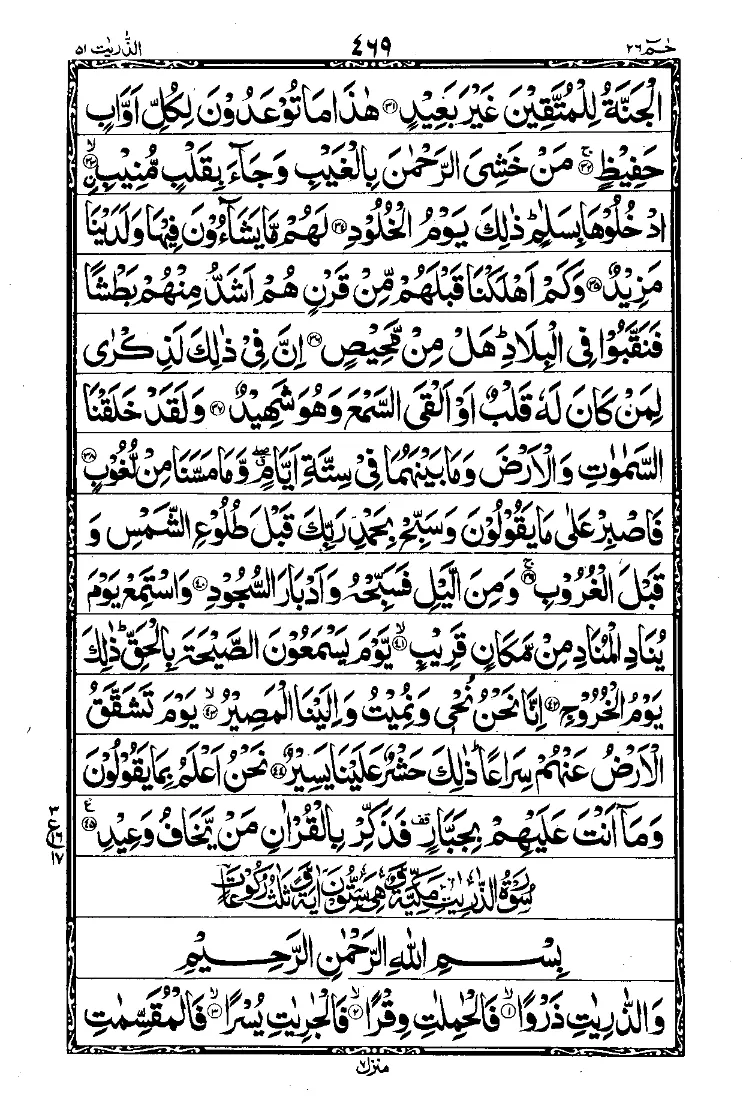 حٰمٓ ٢٦ ٤٦٩ الذّٰریٰت ٥١
الْجَنَّةُ لِلْمُتَّقِیْنَ غَیْرَ بَعِیْدٍ ﴿٣١﴾ هٰذَا مَا تُوْعَدُوْنَ لِكُلِّ اَوَّابٍ
حَفِیْظٍ ﴿٣٢﴾ۚ مَنْ خَشِیَ الرَّحْمٰنَ بِالْغَیْبِ وَجَآءَ بِقَلْبٍ مُّنِیْبِ ﴿٣٣﴾ۙ
ادْخُلُوْهَا بِسَلٰمٍ ؕ ذٰلِكَ یَوْمُ الْخُلُوْدِ ﴿٣٤﴾ لَهُمْ مَّا یَشَآءُوْنَ فِیْهَا وَلَدَیْنَا
مَزِیْدٌ ﴿٣٥﴾ وَكَمْ اَهْلَكْنَا قَبْلَهُمْ مِّنْ قَرْنٍ هُمْ اَشَدُّ مِنْهُمْ بَطْشًا
فَنَقَّبُوْا فِی الْبِلَادِ ؕ هَلْ مِنْ مَّحِیْصٍ ﴿٣٦﴾ اِنَّ فِیْ ذٰلِكَ لَذِكْرٰی
لِمَنْ كَانَ لَهٗ قَلْبٌ اَوْ اَلْقَی السَّمْعَ وَهُوَ شَهِیْدٌ ﴿٣٧﴾ وَلَقَدْ خَلَقْنَا
السَّمٰوٰتِ وَالْاَرْضَ وَمَا بَیْنَهُمَا فِیْ سِتَّةِ اَیَّامٍ ۖۗ وَّمَا مَسَّنَا مِنْ لُّغُوْبٍ ﴿٣٨﴾
فَاصْبِرْ عَلٰی مَا یَقُوْلُوْنَ وَسَبِّحْ بِحَمْدِ رَبِّكَ قَبْلَ طُلُوْعِ الشَّمْسِ وَ
قَبْلَ الْغُرُوْبِ ﴿٣٩﴾ۚ وَمِنَ الَّیْلِ فَسَبِّحْهُ وَاَدْبَارَ السُّجُوْدِ ﴿٤٠﴾ وَاسْتَمِعْ یَوْمَ
یُنَادِ الْمُنَادِ مِنْ مَّكَانٍ قَرِیْبٍ ﴿٤١﴾ۙ یَّوْمَ یَسْمَعُوْنَ الصَّیْحَةَ بِالْحَقِّ ؕ ذٰلِكَ
یَوْمُ الْخُرُوْجِ ﴿٤٢﴾ اِنَّا نَحْنُ نُحْیٖ وَنُمِیْتُ وَاِلَیْنَا الْمَصِیْرُ ﴿٤٣﴾ۙ یَوْمَ تَشَقَّقُ
الْاَرْضُ عَنْهُمْ سِرَاعًا ؕ ذٰلِكَ حَشْرٌ عَلَیْنَا یَسِیْرٌ ﴿٤٤﴾ نَحْنُ اَعْلَمُ بِمَا یَقُوْلُوْنَ
وَمَاۤ اَنْتَ عَلَیْهِمْ بِجَبَّارٍ ۫ قف فَذَكِّرْ بِالْقُرْاٰنِ مَنْ یَّخَافُ وَعِیْدِ ﴿٤٥﴾ ع
٣
ع ١٦
١٧
سُوْرَةُ الذّٰرِیٰتِ مَكِّیَّةٌ وَّهِیَ سِتُّوْنَ اٰیَةً وَّثَلٰثُ رُكُوْعَاتٍ
بِسْمِ اللهِ الرَّحْمٰنِ الرَّحِیْمِ
وَالذّٰرِیٰتِ ذَرْوًا ﴿١﴾ۙ فَالْحٰمِلٰتِ وِقْرًا ﴿٢﴾ۙ فَالْجٰرِیٰتِ یُسْرًا ﴿٣﴾ۙ فَالْمُقَسِّمٰتِ
منزل ٧